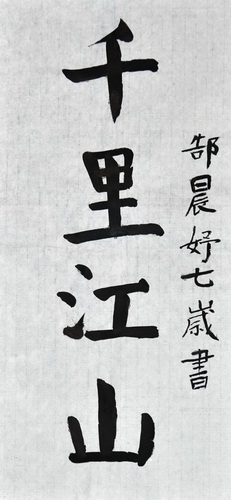 千里江山
郜晨妤七歲書